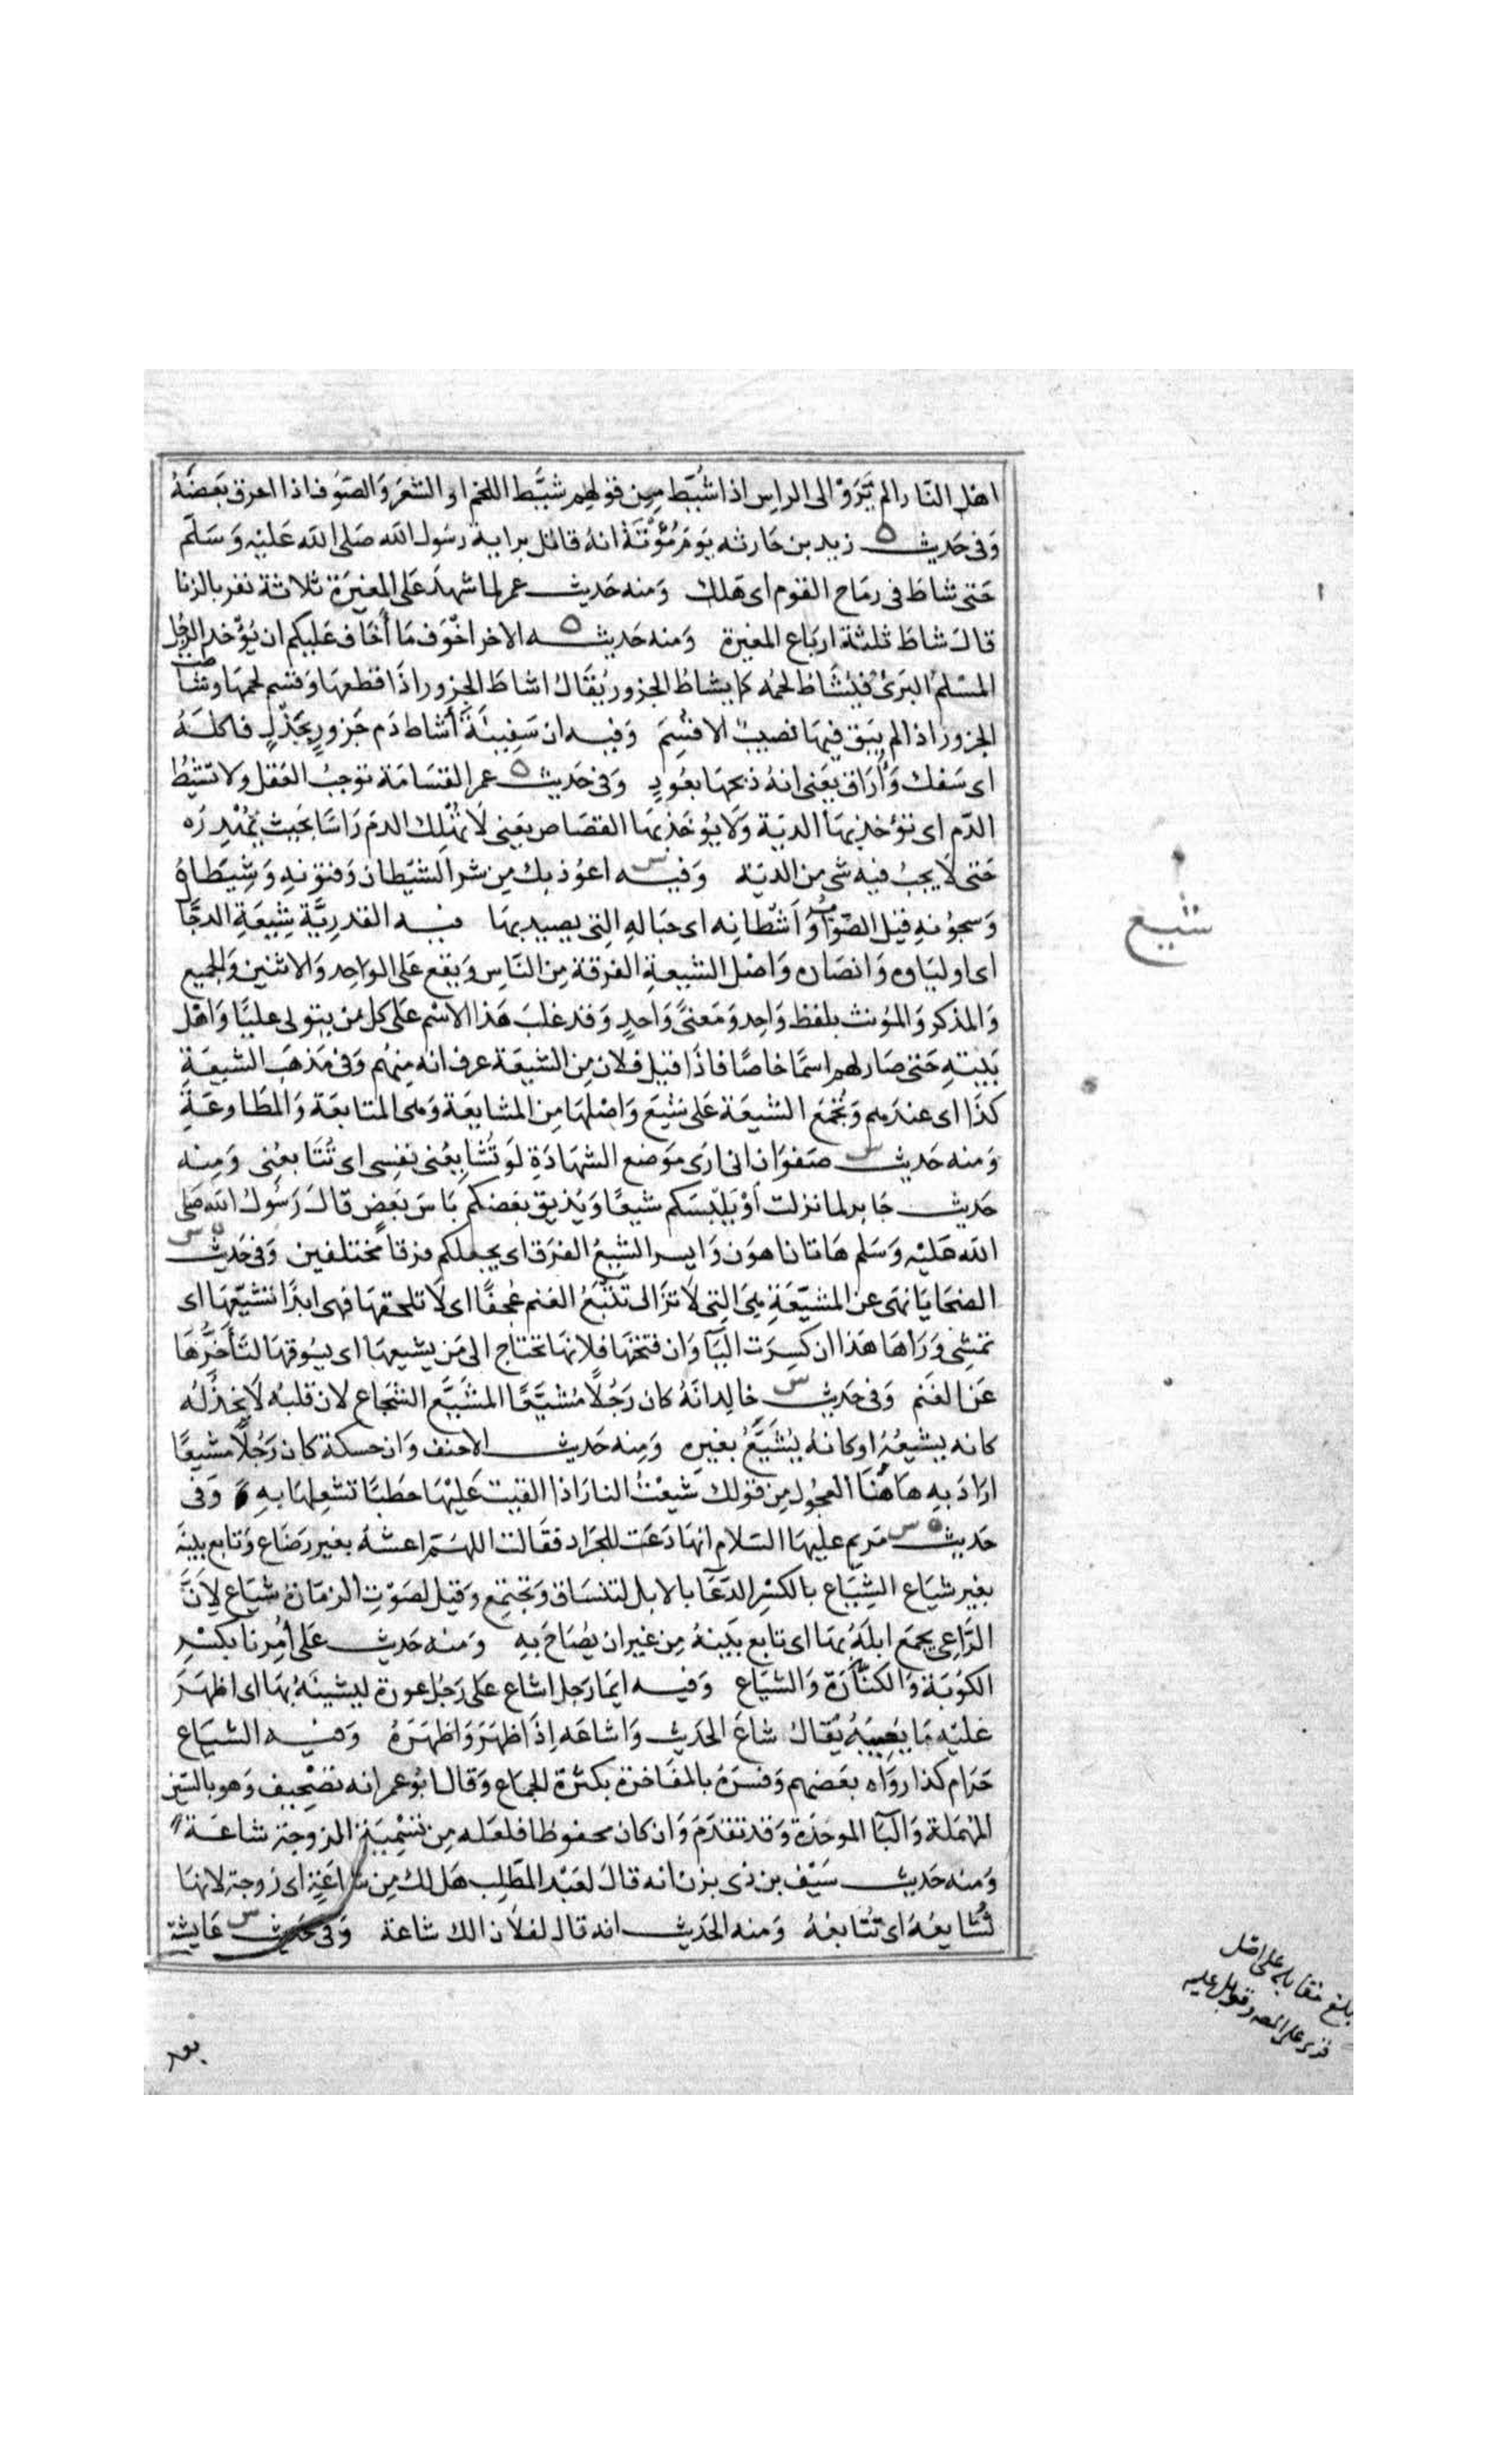 اهل النار الم تَرَوْا الى الراس اذا شُيّط مِن قولهم شَيَّط اللحم او الشعَر وَالصّوف اذا احرق بَعضَهُ
وَفى حَديث زيد بن حَارثه يَومَ مُؤْتَةَ انهُ قاتل براية رسُول الله صَلى الله عَليْه وَسَلّم
حَتى شاطَ فى رمَاح القوم اى هَلك وَمنه حَديث عمر لما شهدَ عَلى المغيَرة ثلاثة نفر بالزنا
قالَ شاطَ ثلثة ارباع المغيرة وَمنه حَديثه الاخر اخْوَف مَا أخَاف عَليكم ان يُؤخَذ الرجُل
المسْلمُ البَرئُ فيُشَاط لحمُه كما يشاطُ الجزور يُقَالُ اشاطَ الجزور اذَا قطعهَا وَقسّم لحمهَا وشَاطت
الجزور اذا لم يَبق فيهَا نصيبٌ الا قُسِمَ وَفيه ان سَفِينَةَ أشاط دَم جَزورٍ بجَذْلٍ فاكلهُ
اى سَفك وَأَرَاق يَعنى انهُ ذبحهَا بعُودٍ وَفى حَديث عمر القسَامَة توجبُ العَقل ولا تشيطُ
الدّم اى تؤخذ بهَا الديَة وَلَا يُؤخَذ بهَا القصَاص يعَنى لَا تُهْلِك الدمَ رَاسًا بحَيث تُهْدِرُه
حَتى لَا يجبُ فيه شى من الديَة وَفيه اعوُذ بك مِن شر الشيَطان وَفتونهِ وَشِيطَاهُ
وَسجوُنهِ قيل الصَوَابُ وَأشْطانِه اى حبَالهِ التِى يصيد بهَا فيه القدرِيَّة شِيعَة الدجَّا
اى اوليَاوه وَانصَاره وَاصْل الشيعةِ الفرقة مِن النَّاسِ وَيقع عَلى الواحِد وَالاثنين وَالجميع
وَالمذكر وَالموُنث بلفظ وَاحِد وَمَعنىً وَاحدٍ وَقد غلبَ هَذا الاسْم عَلى كل من يتولى عليًّا وَاهْل
بَيتهِ حَتى صَار لهم اسمًا خاصًا فاذَا قيل فلان مِن الشيعَة عرف انه مِنهُم وَفى مَذهَب الشيعَةِ
كذَا اى عندَهم وَتُجْمَع الشيعَة عَلى شِيَع وَاصْلهَا مِن المشايعَة وَهى المتابعَة وَالمطَاوعَةِ
وَمنه حَديث صَفوَان انى ارَى مَوضع الشهَادَةِ لَو تُشَايعُنى نفِسى اى تُتَابعُنى وَمِنه
حَديث جَابر لما نزلت أوْ يَلبِسَكم شيعًا وَيُذيقَ بَعضكم بَاسَ بَعضٍ قالَ رَسُولُ الله صَلى
الله عَليْه وَسَلم هَاتان اهوَن وَايسر الشيعُ الفرَق اى يجعلكم فرقا مختلفين وَفى حَديث
الضحَايَا نهَى عن المشيّعَةِ هِىَ التِى لَا تزَال تَتْبَعُ الغنم عُجفًا اى لَا تلحقهَا فهى ابدًا تشيّعهَا اى
تمشِى وَرَاهَا هَذا ان كسِرَت اليَآ وَان فتحتهَا فلانهَا تحتاج الى مَن يشيعهَا اى يسُوقهَا لتَأَخرُّهَا
عَن الغَنم وَفى حَديث خالِد انَهُ كان رَجُلًا مُشيَّعًا المشَيَّع الشجَاع لان قلبهُ لَا يخذُلهُ
كانه يشيعُهُ او كانهُ يُشَيَّعُ بغيره وَمِنه حَديث الاحنف وَان حسكة كان رَجُلًا مشيعًا
ارَادَ بهِ هَاهُنَا العجوُل مِن قولك شَيعْتُ النارَ اذا القيت عَليْهَا حطَبًا تشعِلهَا بهِ وَفى
حَديث مَريم عليهَا السَلام انهَا دَعَت للجَراد فقَالت اللهمّ اعشهُ بغير رَضَاع وَتابع بينَه
بغير شيَاع الشِيَاع بالكسْر الدّعَآ بالابل لتنسَاق وَتجتمِع وَقيل لصَوْتِ الزمّارة شيَاع لِأنَّ
الرَّاعِى يجمَع ابلَهُ بهَا اى تابع بَينهُ مِن غير ان يصَاحَ بهِ وَمنه حَديث عَلى اُمِرنا بكسْرِ
الكوُبَة وَالكنّارَة وَالشيَاع وَفيه ايمَا رَجل اشاع عَلى رَجُل عورة ليشينَهُ بهَا اى اظهَرَ
عَليْه مَا يعَيبهُ يُقَالُ شاعَ الحَديث وَاشاعَه اِذَا ظهَرَ وَاظهَرَهُ وَفيه الشيَاع
حَرَام كذا روَاه بعَضهم وَفسَرَهُ بالمفَاخرة بكثرَة الجمَاع وَقال ابُو عمر انه تصَحْيف وَهو بالسّين
المُهمَلة وَالبَآ الموحَدَة وَقد تقدَمَ وَان كان محفوظا فلعَله مِن تسْمِيَة الزوجة شاعَة
وَمنه حَديث سَيْف بن ذى يزن انه قالَ لعَبْد المطّلِب هَل لك مِن شاعَةٍ اى زوجة لانهَا
تُشَايعُهُ اى تُتَابعُهُ وَمنه الحَديث انه قال لفلَان الك شاعة وَفى حَديث عَايشة
شيع
بلغ مقابلة على اصل
قرئ على المص وقوبل عليه
بعد